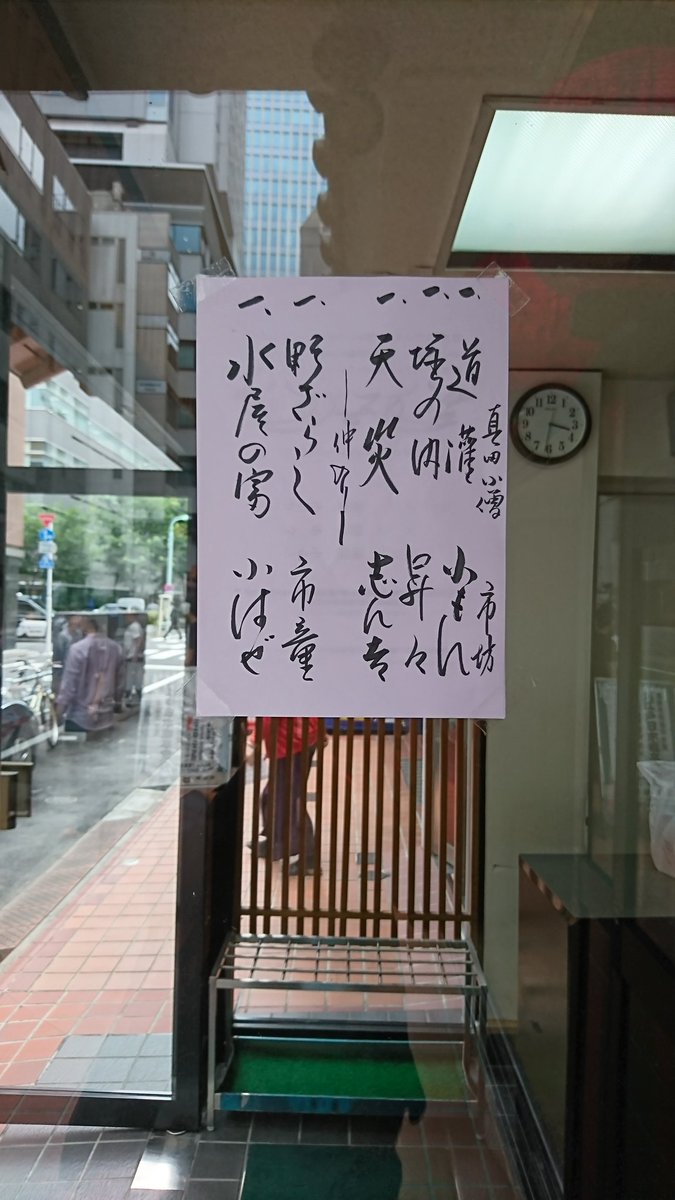 真田小僧 市坊
一、道灌 小もん
一、堀の内 昇々
一、天災 志ん吉
―仲入り―
一、野ざらし 市童
一、水屋の富 小はぜ